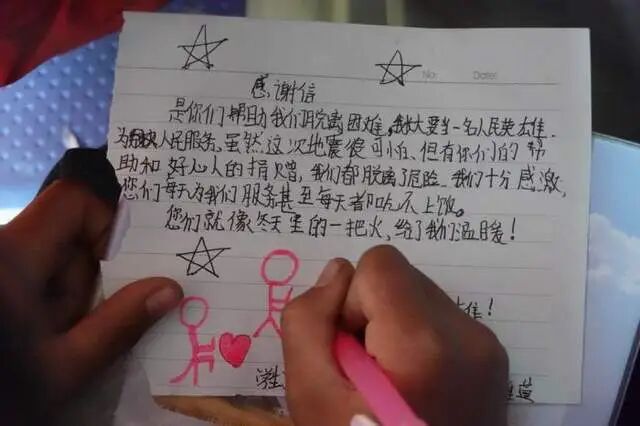 No: Date:
感谢信
是你们帮助我们脱离困难,我长大要当一名人民英雄.
为人民服务.虽然这次地震很可怕,但有你们的帮
助和好心人的捐赠,我们都脱离了危险.我们十分感激,
您们每天为我们服务甚至每天都吃不上饭。
您们就像冬天里的一把火,给了我们温暖!
雄!